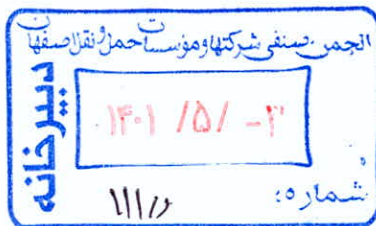 انجمن صنفی شرکتها و مؤسسات حمل و نقل اصفهان
دبیرخانه
۱۴۰۱ /۵/ -۳
شماره: